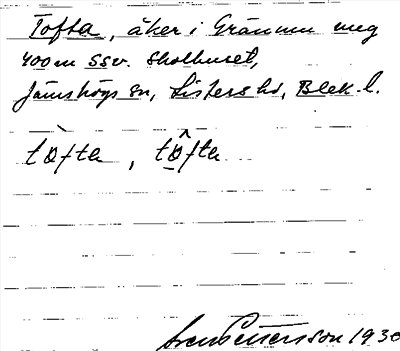 Tofta, åker i Gränum ung
400 m SSV. Skolhuset,
Jämshögs sn, Listers hd, Blek. l.
tòfta, tô̱fta
Sven Pettersson 1930